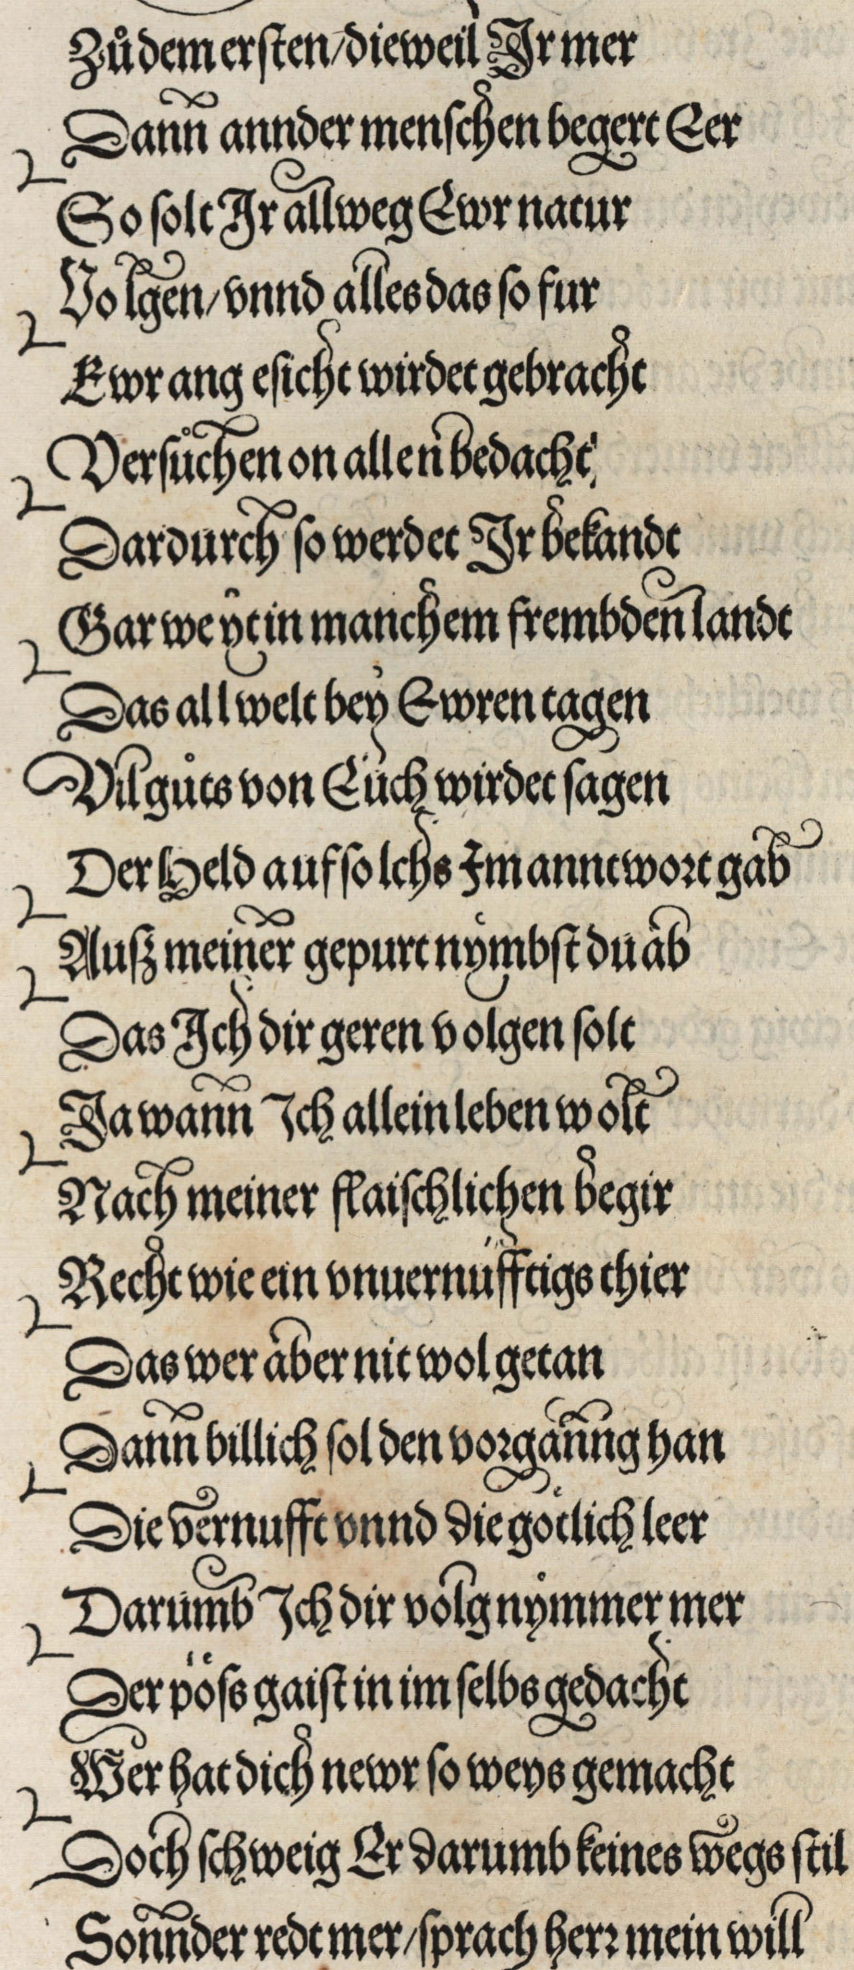 Zů dem ersten/dieweil Ir mer
Dann annder menschen begert Eer
So solt Ir allweg Ewr natur
Volgen/vnnd alles das so fur
Ewr angesicht wirdet gebracht
Versůchen on allen bedacht
Dardurch so werdet Ir bekandt
Gar weyt in manchem frembden landt
Das all welt bey Ewren tagen
Vil gůts von Euch wirdet sagen
Der Held auf solchs Im anntwort gab
Auß meiner gepurt nymbst du ab
Das Ich dir geren volgen solt
Ja wann Ich allein leben wolt
Nach meiner flaischlichen begir
Recht wie ein vnuernüfftigs thier
Das wer aber nit wol getan
Dann billich sol den vorganng han
Die vernufft vnnd die götlich leer
Darumb Ich dir volg nymmer mer
Der pöss gaist in im selbs gedacht
Wer hat dich newr so weys gemacht
Doch schweig Er darumb keines wegs stil
Sonnder redt mer/sprach herr mein will